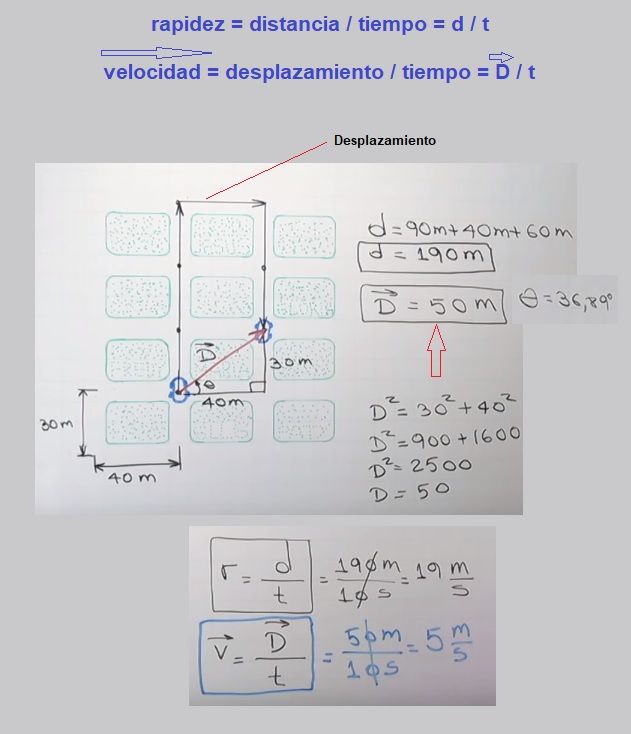 rapidez = distancia / tiempo = d / t
velocidad = desplazamiento / tiempo = D / t
Desplazamiento
d = 90m + 40m + 60m
d = 190m
D = 50m θ = 36,89°
D
θ
30m
40m
30m
40m
D² = 30² + 40²
D² = 900 + 1600
D² = 2500
D = 50
r = d/t = 190m/10s = 19 m/s
V = D/t = 50m/10s = 5 m/s